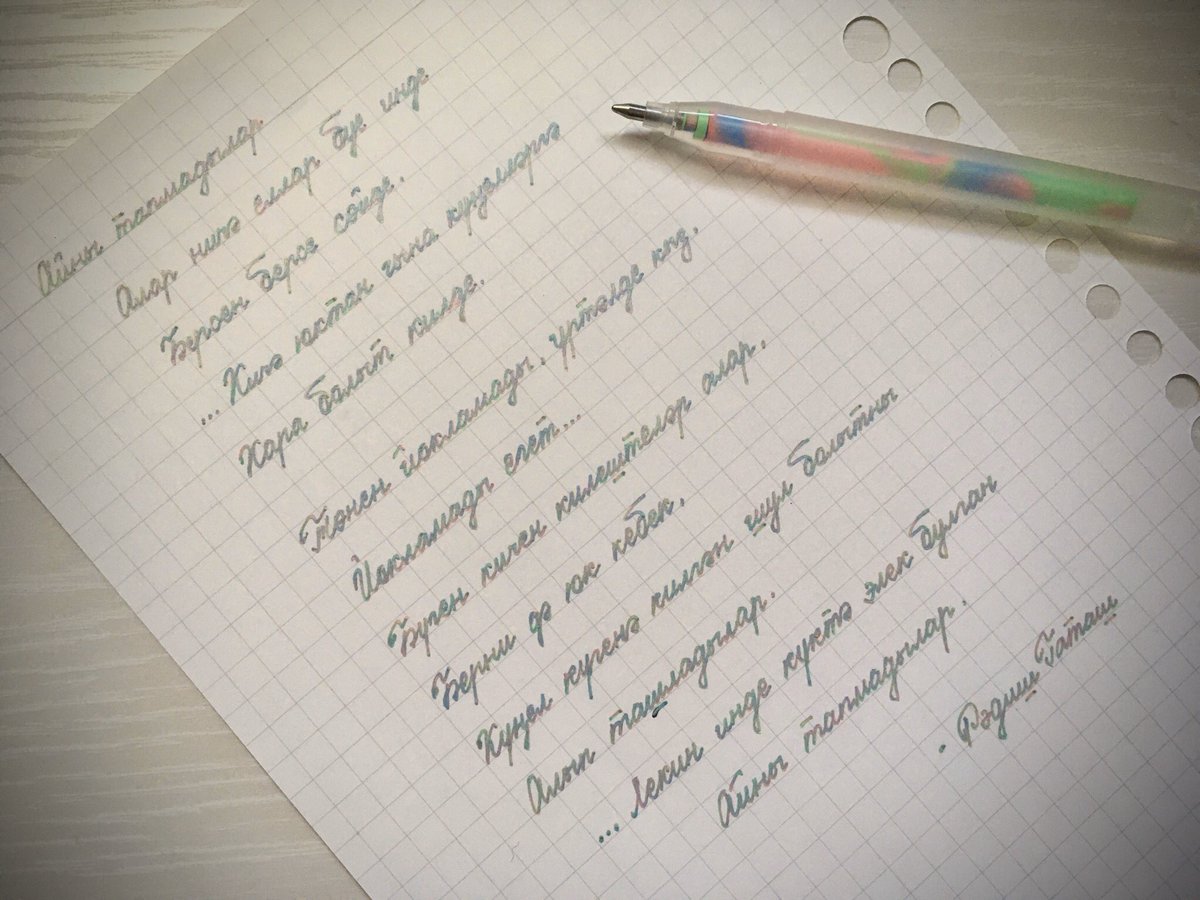 Айны тапмадылар
Алар ничә еллар буе инде
Берсен берсе сөйде.
...Кичә юктан гына күңелләргә
Кара болыт килде.
Төнен йокламады, үртәлде кыз,
Йокламады егет...
Бүген кичен килештеләр алар,
Берни дә юк кебек.
Күңел күгенә килгән шул болытны
Алып ташладылар.
...Лекин инде күктә элек булган
Айны тапмадылар.
- Рәдиш Гаташ